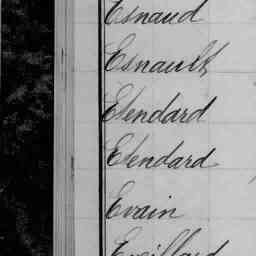 Esnaud
Esnault
Etendard
Etendard
Evain
Eveillard